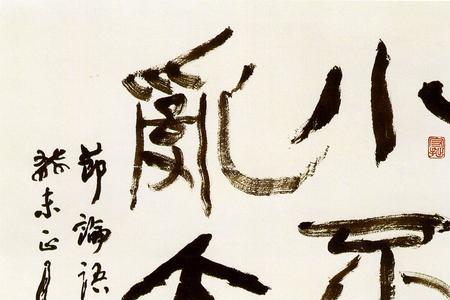 小不
亂大
節論語
癸未正月